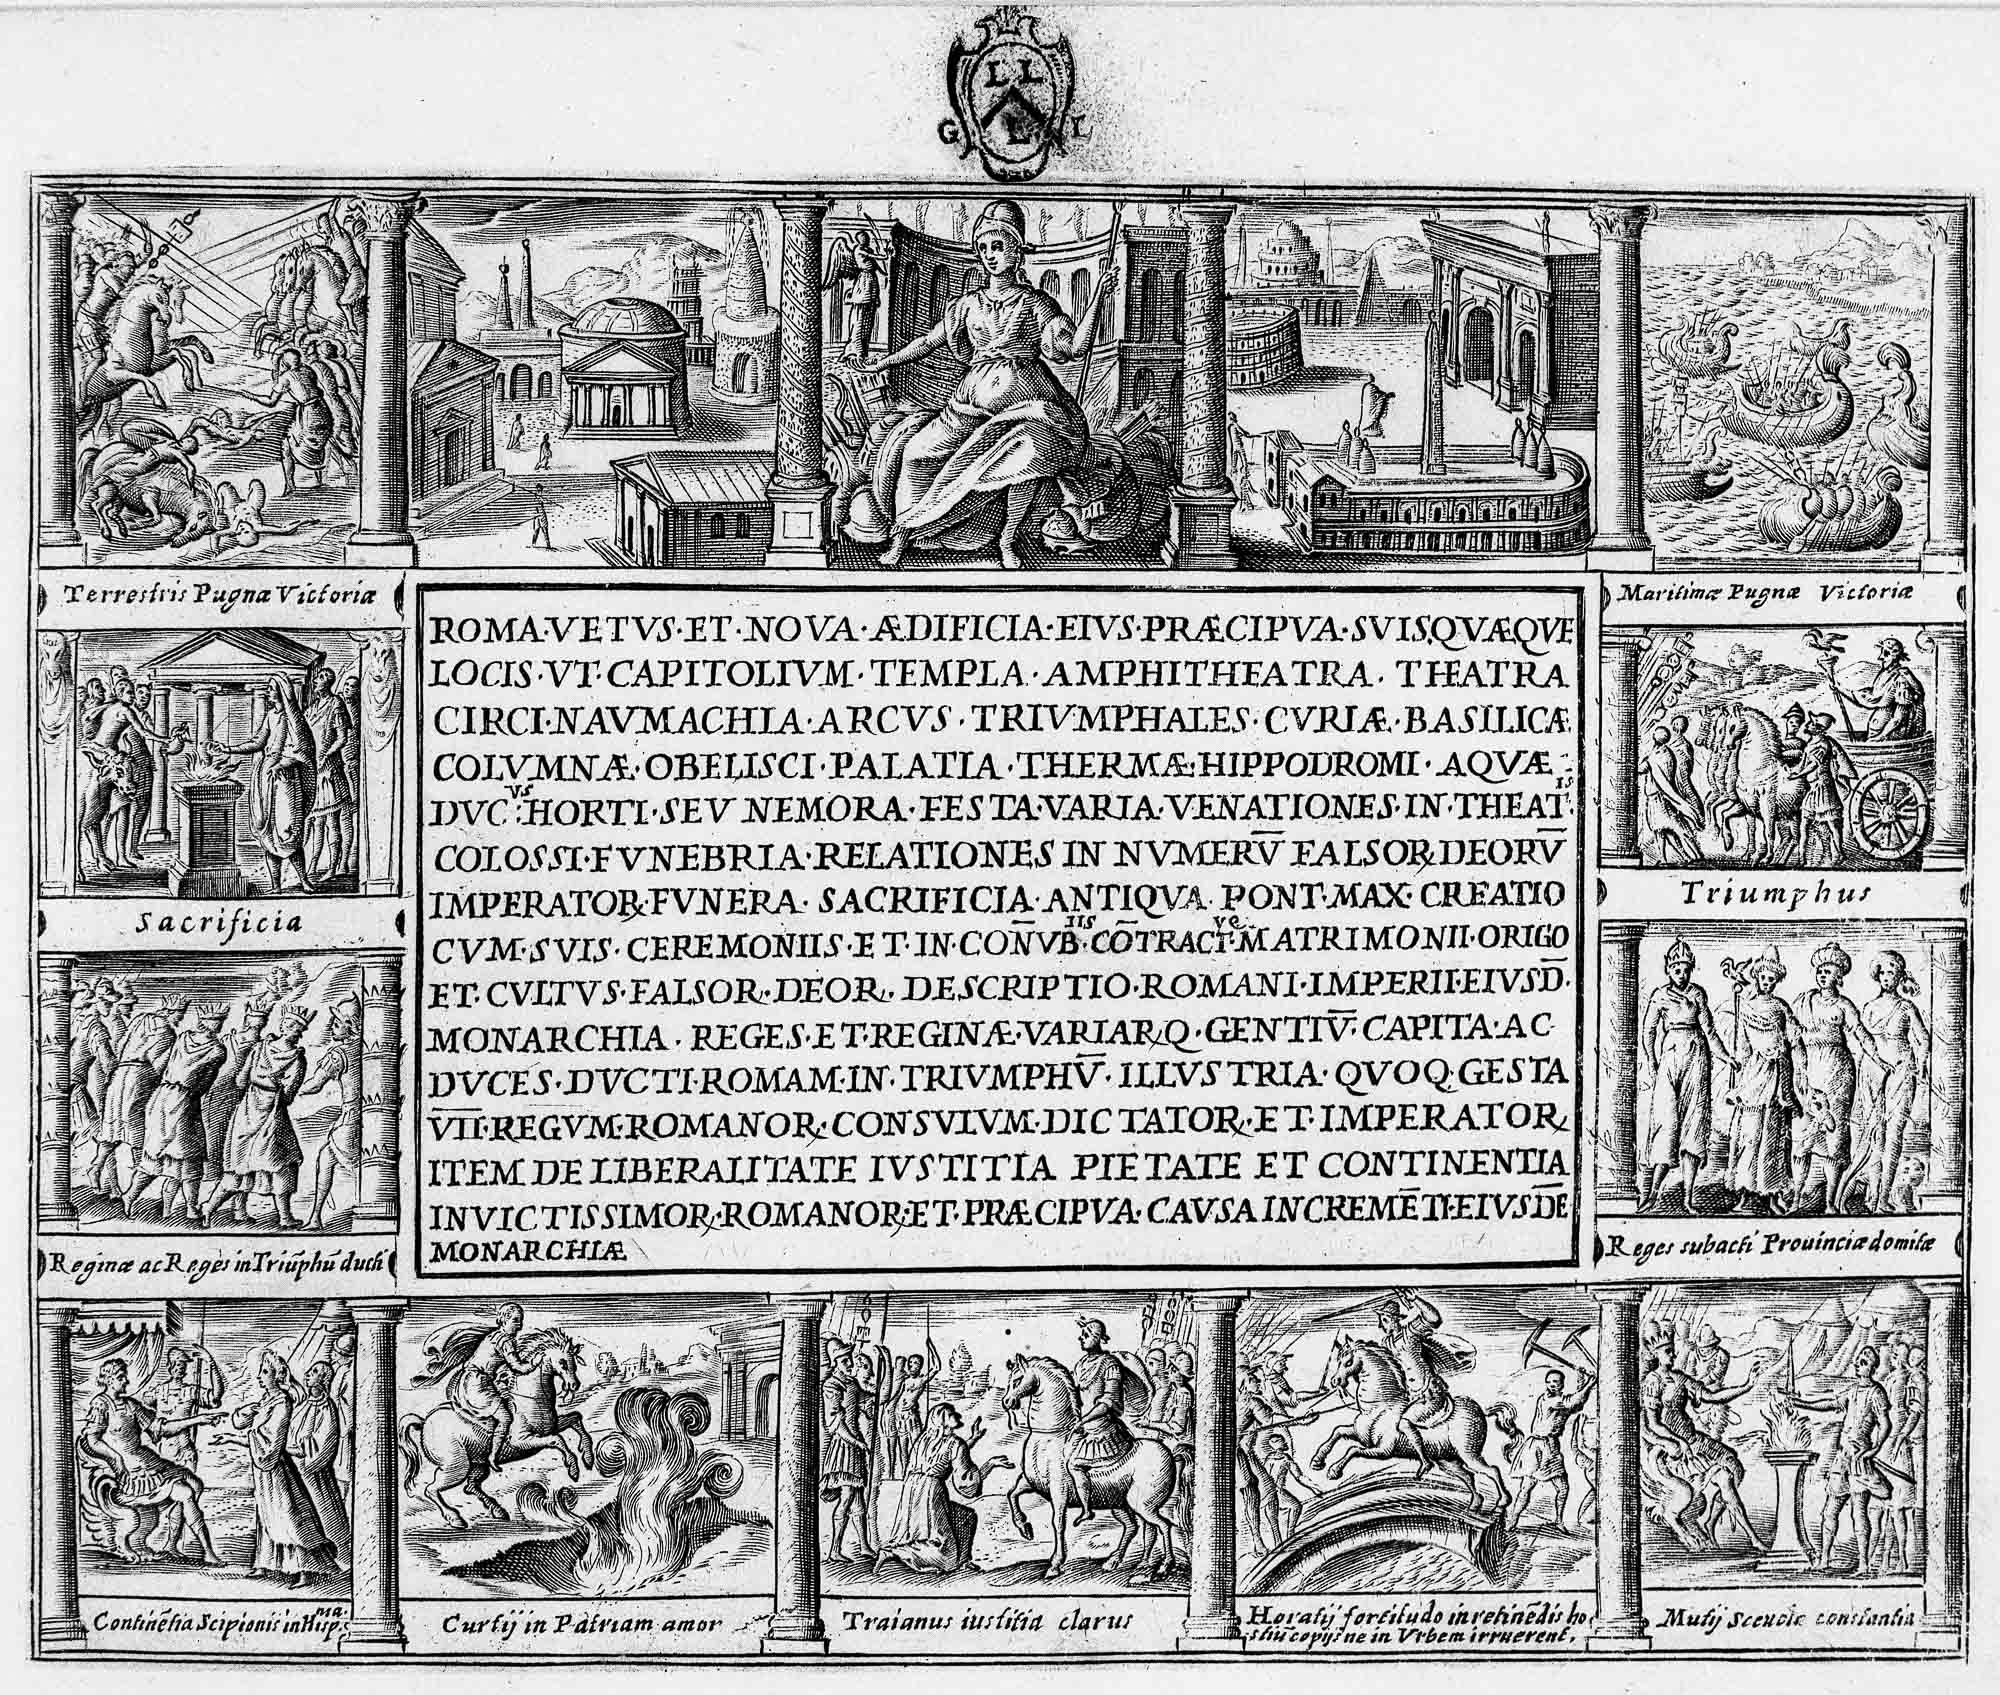 L L
G L L
Terrestris Pugnæ Victoriæ
Maritimæ Pugnæ Victoriæ
ROMA·VETVS·ET·NOVA·ÆDIFICIA·EIVS·PRÆCIPVA·SVIS·QVÆQVE
LOCIS·VT·CAPITOLIVM·TEMPLA·AMPHITHEATRA·THEATRA
CIRCI·NAVMACHIA·ARCVS·TRIVMPHALES·CVRIÆ·BASILICÆ
COLVMNÆ·OBELISCI·PALATIA·THERMÆ·HIPPODROMI·AQVÆ-
DVC^VS·HORTI·SEV NEMORA·FESTA·VARIA·VENATIONES·IN·THEAT^IS·
COLOSSI·FVNEBRIA·RELATIONES IN NVMERV̄ FALSOꝜ DEORV̄
IMPERATOꝜ·FVNERA·SACRIFICIA·ANTIQVA·PONT·MAX·CREATIO
CVM·SVIS·CEREMONIIS·ET·IN·CON̄VB^IIS·CŌTRACT^VE·MATRIMONII·ORIGO
ET·CVLTVS·FALSOR·DEOR·DESCRIPTIO·ROMANI·IMPERII·EIVSD̄·
MONARCHIA·REGES·ET·REGINÆ·VARIAꝜQ·GENTIV̄·CAPITA·AC
DVCES·DVCTI·ROMAM·IN·TRIVMPHV̄·ILLVSTRIA·QVOQ·GESTA
V̄ĪĪ·REGVM·ROMANOꝜ·CONSVLVM·DICTATOꝜ·ET·IMPERATOꝜ
ITEM DE LIBERALITATE IVSTITIA PIETATE ET CONTINENTIA
INVICTISSIMOꝜ·ROMANOꝜ·ET·PRÆCIPVA·CAVSA INCREMĒTI·EIVSD̄E
MONARCHIÆ
Sacrificia
Triumphus
Reginæ ac Reges in Triūphū ducti
Reges subacti Prouinciæ domitæ
Continētia Scipionis in Hisp^nia.
Curtij in Patriam amor
Traianus iustitia clarus
Horatij fortitudo in retinēdis ho
stiū copijs ne in Vrbem irruerent.
Mutij Sceuolæ constantia